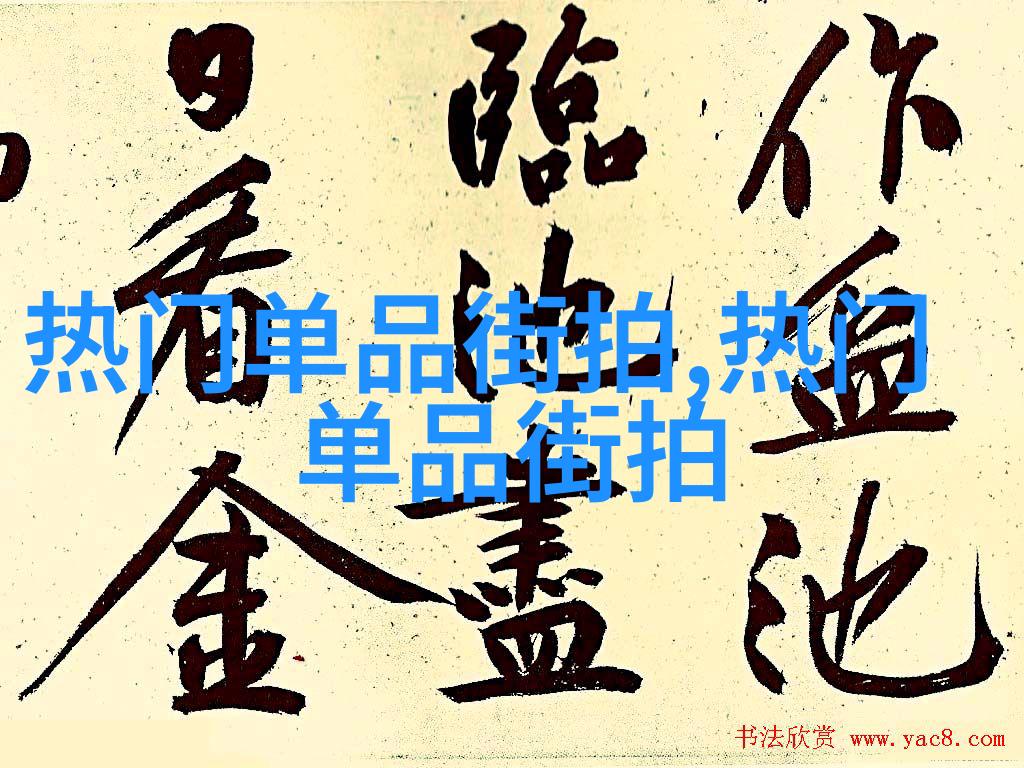 作血池
臨池盡
日看金
热门单品街拍,热门
单品街拍
书法欣赏 www.yac8.com